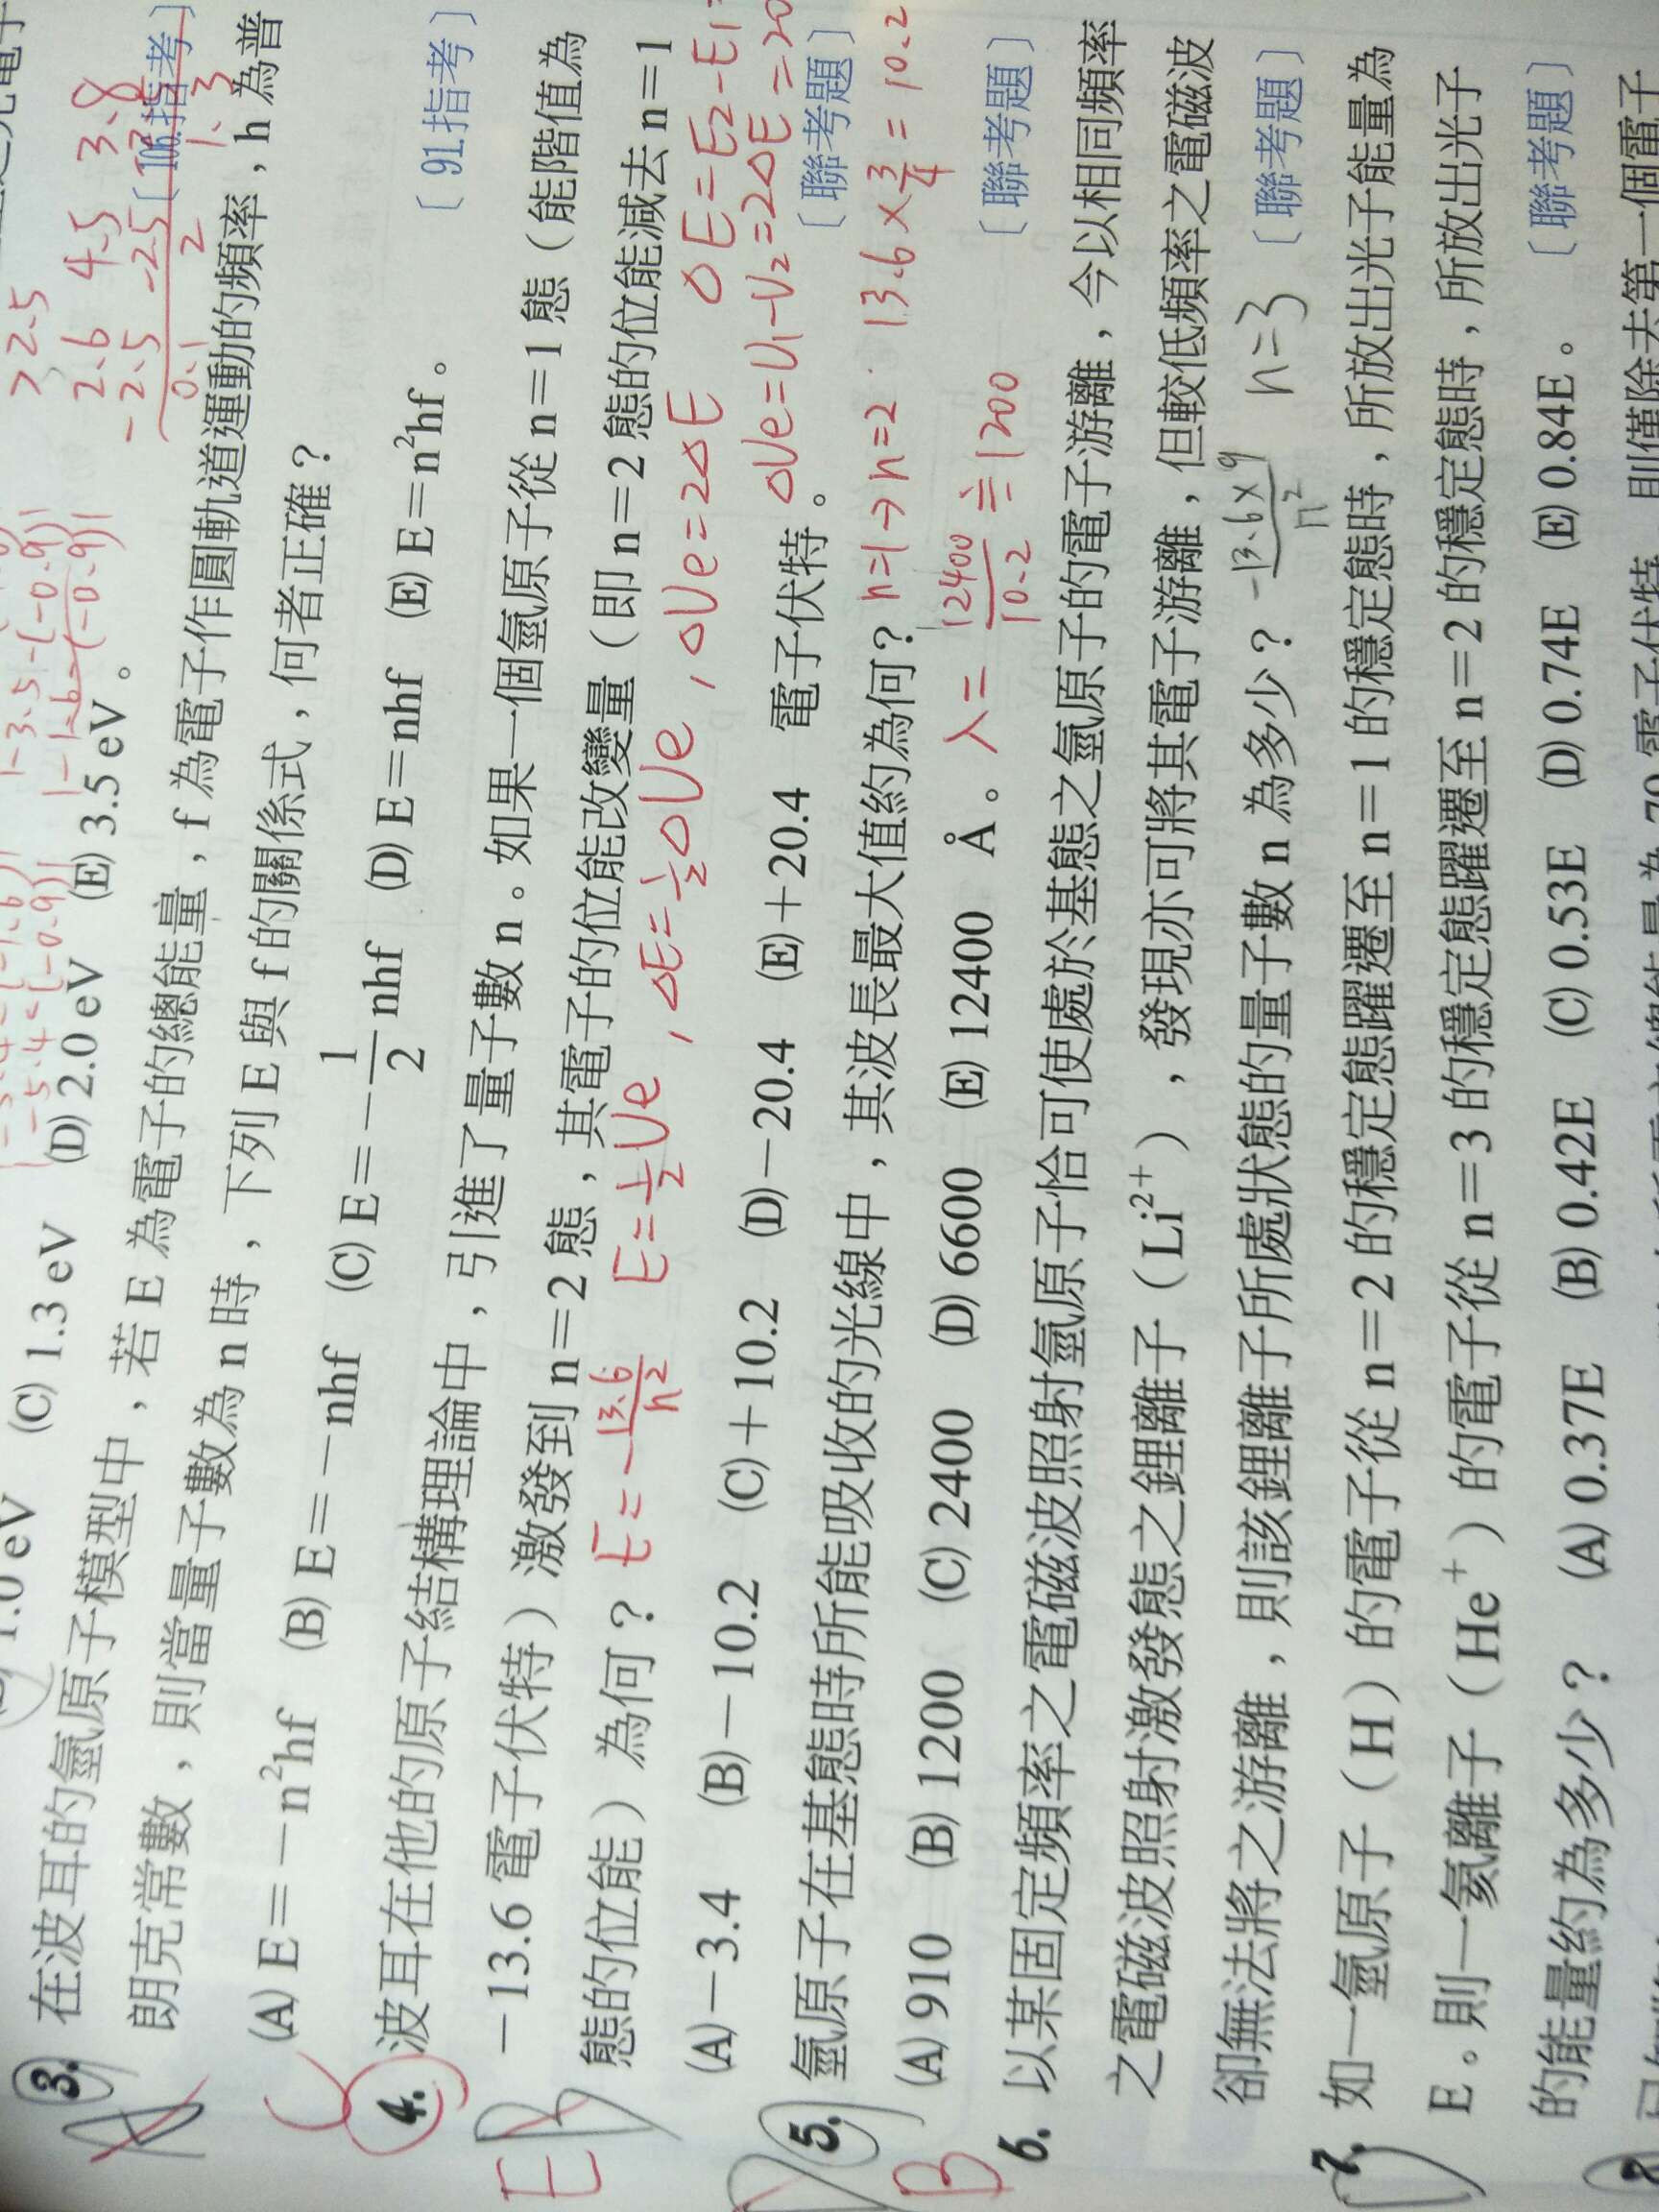 (C) 1.3 eV (D) 2.0 eV (E) 3.5 eV。
〔106.指考〕
> 2.5
2.6 4.5 3.8
- 2.5 -2.5
0.1 2 1.3
3. 在波耳的氫原子模型中，若 E 為電子的總能量，f 為電子作圓軌道運動的頻率，h 為普
朗克常數，則當量子數為 n 時，下列 E 與 f 的關係式，何者正確？
(A) E＝－n²hf (B) E＝－nhf (C) E＝－1/2 nhf (D) E＝nhf (E) E＝n²hf。
〔91.指考〕
C
4. 波耳在他的原子結構理論中，引進了量子數 n。如果一個氫原子從 n＝1 態（能階值為
－13.6 電子伏特）激發到 n＝2 態，其電子的位能改變量（即 n＝2 態的位能減去 n＝1
態的位能）為何？
E = -13.6/n² E = ½Ue , ΔE = ½ΔUe , ΔUe = 2ΔE
(A)－3.4 (B)－10.2 (C)＋10.2 (D)－20.4 (E)＋20.4 電子伏特。
〔聯考題〕
E B
5. 氫原子在基態時所能吸收的光線中，其波長最大值約為何？
n=1→n=2 13.6×3/4 = 10.2
(A) 910 (B) 1200 (C) 2400 (D) 6600 (E) 12400 Å。
λ = 12400/10.2 ≒ 1200
〔聯考題〕
B
6. 以某固定頻率之電磁波照射氫原子恰可使處於基態之氫原子的電子游離，今以相同頻率
之電磁波照射激發態之鋰離子（Li²⁺），發現亦可將其電子游離，但較低頻率之電磁波
卻無法將之游離，則該鋰離子所處狀態的量子數 n 為多少？
-13.6×9/n² n=3
〔聯考題〕
7. 如一氫原子（H）的電子從 n＝2 的穩定態躍遷至 n＝1 的穩定態時，所放出光子能量為
E。則一氦離子（He⁺）的電子從 n＝3 的穩定態躍遷至 n＝2 的穩定態時，所放出光子
的能量約為多少？ (A) 0.37E (B) 0.42E (C) 0.53E (D) 0.74E (E) 0.84E。
〔聯考題〕